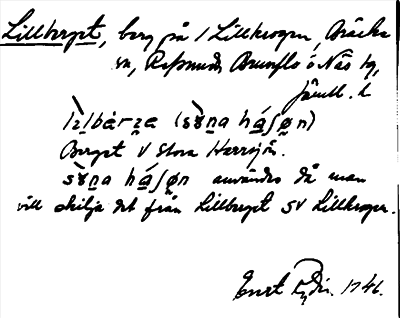 Lillberget, berg på / Lillkrogen, Bräcke
sn, Refsunds, Brunflo o Näs tg,
Jämtl. l
lìlbárʒa (sʏ̀na hásøn)
Berget V Stora Harrsjön.
sʏ̀na hásøn användes då man
vill skilja det från Lillberget SV Lillkrogen.
1946.